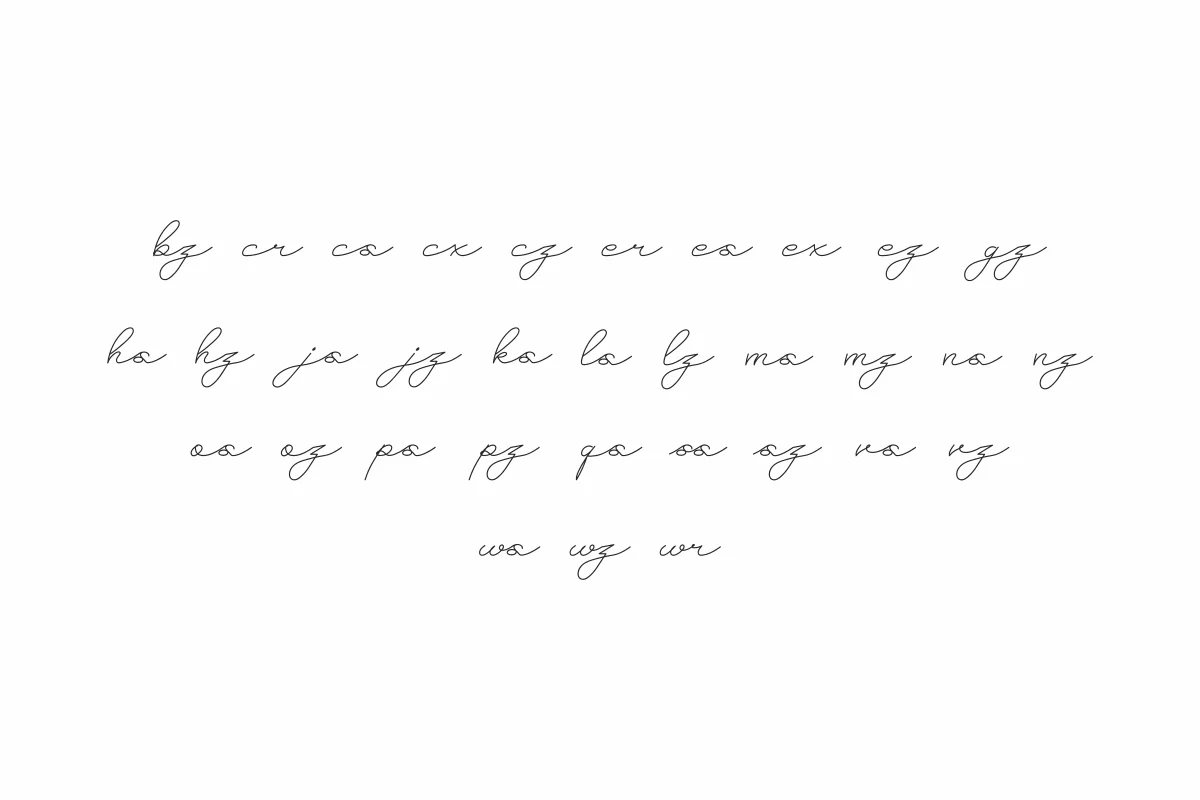 bz cr cs cx cz er es ex ez gz
hs hz js jz ks ls lz ms mz ns nz
os oz ps pz qs ss sz vs vz
ws wz wr